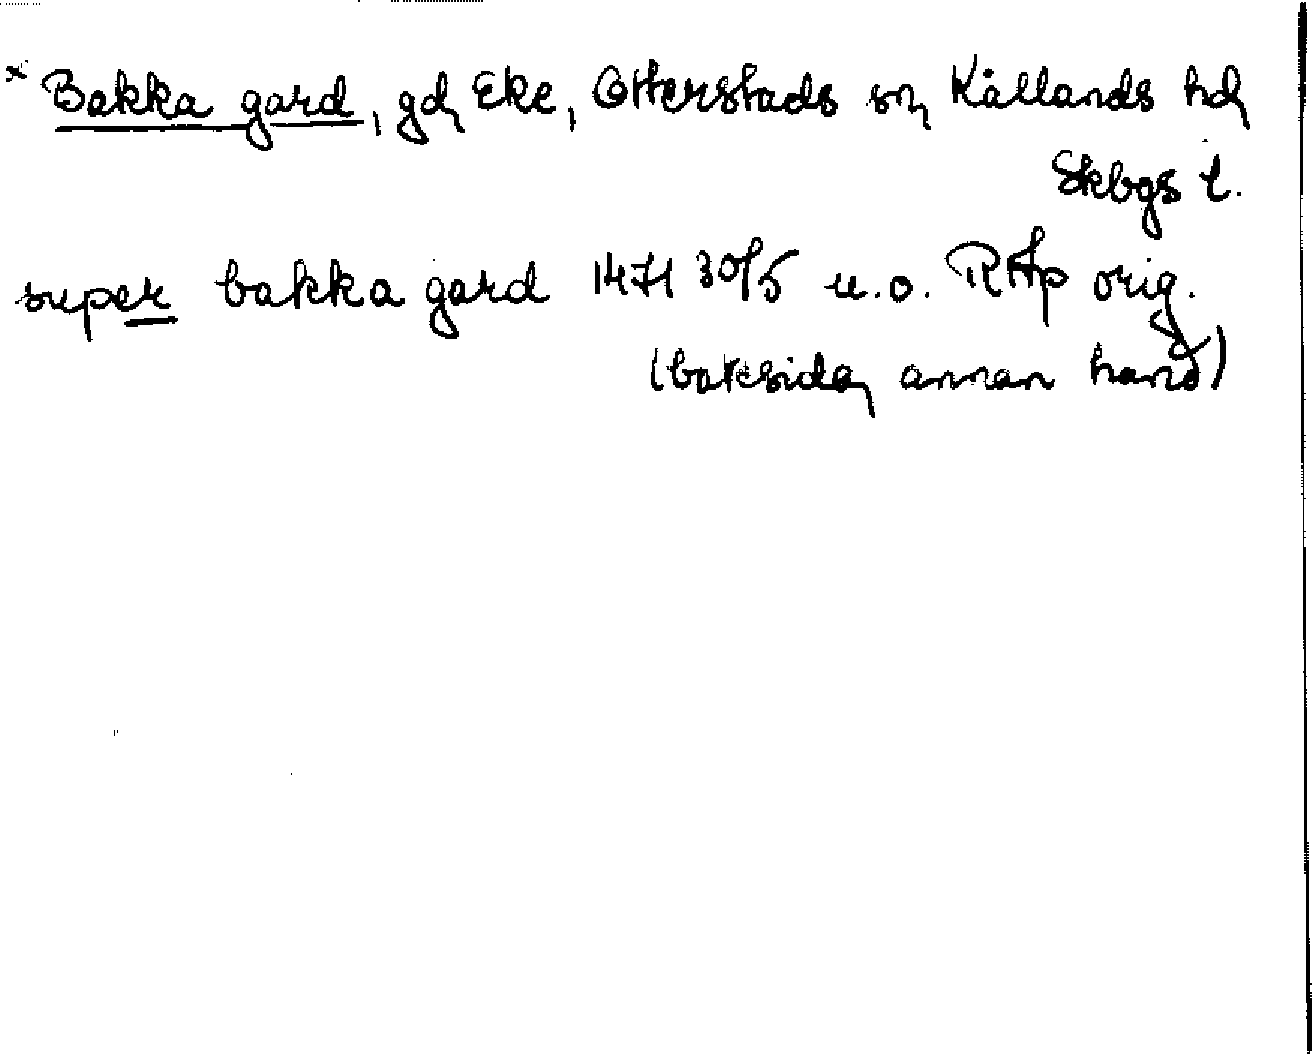 × Bakka gard, gdn Eke, Otterstads sn, Kållands hd
Skbgs l.
super bakka gard 1471 30/5 u.o. RAp orig.
(baksidan annan hand)